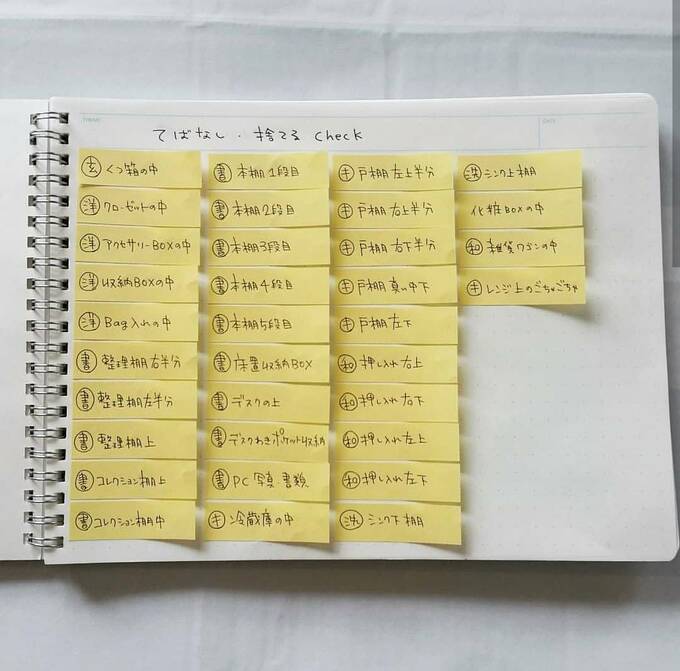 THEME
DATE
てばなし・捨てる check
玄 くつ箱の中
洋 クローゼットの中
洋 アクセサリーBOXの中
洋 収納BOXの中
洋 Bag入れの中
書 整理棚右半分
書 整理棚左半分
書 整理棚上
書 コレクション棚上
書 コレクション棚中
書 本棚1段目
書 本棚2段目
書 本棚3段目
書 本棚4段目
書 本棚5段目
書 床置収納BOX
書 デスクの上
書 デスクわきポケット収納
書 PC 写真 書類
キ 冷蔵庫の中
キ 戸棚 左上半分
キ 戸棚 右上半分
キ 戸棚 右下半分
キ 戸棚 真ん中下
キ 戸棚 左下
和 押し入れ 右上
和 押し入れ 右下
和 押し入れ 左上
和 押し入れ 左下
洗 シンク下棚
洗 シンク上棚
化粧BOXの中
和 雑貨ワゴンの中
キ レンジ上のごちゃごちゃ